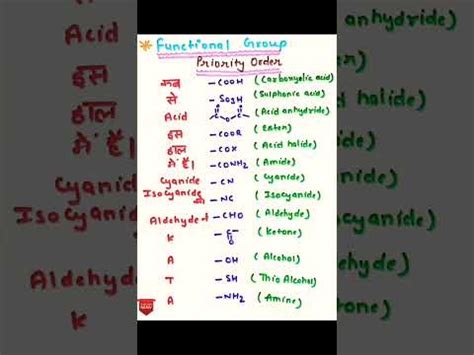 * Functional Group
Priority Order
कब -COOH (Carboxylic acid)
से -SO3H (Sulphonic acid)
Acid -C-O-C- (Acid anhydride)
O O
इस -COOR (Ester)
हाल -COX (Acid halide)
में हैं। -CONH2 (Amide)
Cyanide -CN (Cyanide)
Isocyanide -NC (Isocyanide)
Aldehyde -CHO (Aldehyde)
K -C- (Ketone)
O
A -OH (Alcohol)
T -SH (Thio Alcohol)
A -NH2 (Amine)
Acid
इस
हाल
में हैं।
Cyanide
Isocya
Aldehyde
K
anhydride)
halide)
)
nide)
anide)
yde)